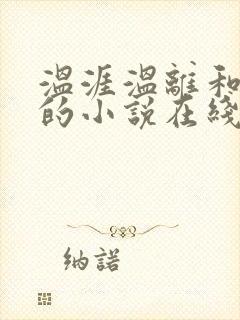 温涯温離和
的小説在綫
纳諾